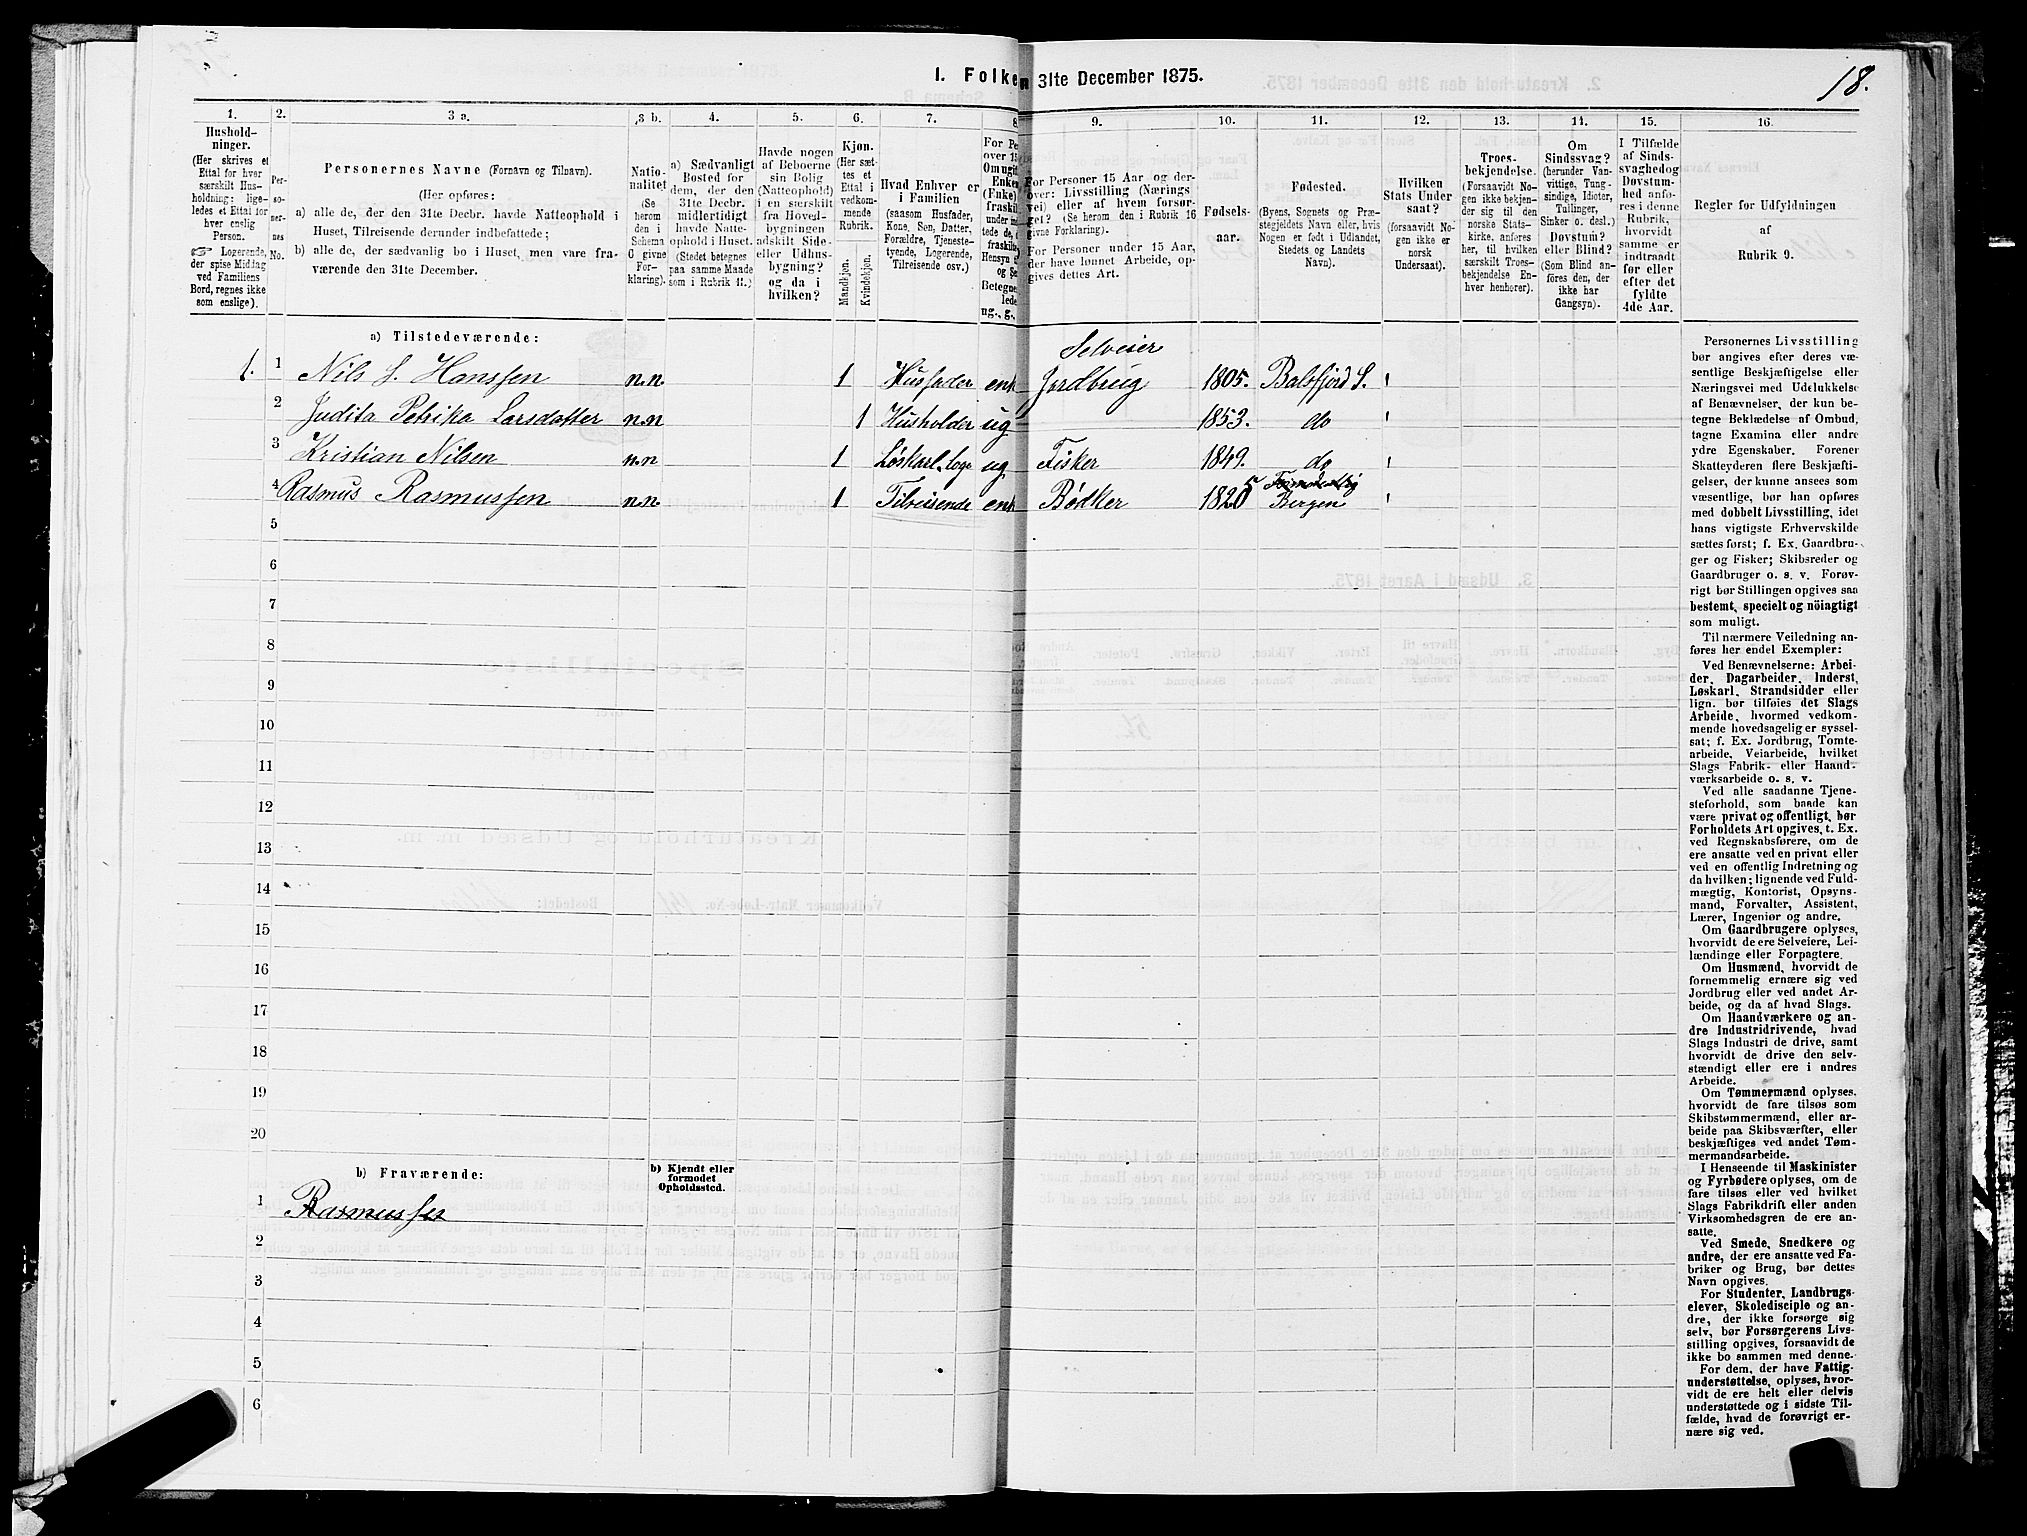 18.
1. Folken
31te December 1875.
1.
2.
3 a.
3 b.
4.
5.
6.
7.
8
9.
10.
11.
12.
13.
14.
15.
16.
Hushold-
ninger.
(Her skrives et
Ettal for hver
særskilt Hus-
holdning: lige-
ledes et Ettal for
hver enslig
Person.
☞ Logerende,
der spise Middag
ved Familiens
Bord, regnes ikke
som enslige).
Per-
so-
ner-
nes
No.
Personernes Navne (Fornavn og Tilnavn).
(Her opføres:
a) alle de, der den 31te Decbr. havde Natteophold i
Huset, Tilreisende derunder indbefattede;
b) alle de, der sædvanlig bo i Huset, men vare fra-
værende den 31te December.
Natio-
nalitet
(Se
herom
den i
Schema
G givne
For-
klaring).
a) Sædvanligt
Bosted for
dem, der den
31te Decbr.
midlertidigt
havde Natte-
ophold i Huset.
(Stedet betegnes
paa samme Maade
som i Rubrik 11.)
Havde nogen
af Beboerne
sin Bolig
(Natteophold)
i en særskilt
fra Hoved-
bygningen
adskilt Side-
eller Udhus-
bygning?
og da i
hvilken?
Kjøn.
(Her sæt-
tes et
Ettal i
vedkom-
mende
Rubrik.
Mandkjøn.
Kvindekjøn.
Hvad Enhver er
i Familien
(saasom Husfader,
Kone, Søn, Datter,
Forældre, Tjeneste-
tyende, Logerende,
Tilreisende osv.)
For Pe
over 15
Om ugift
Enken
(Fnke)
fraskil
under in
tede de,
fraskilte
Hensyn t
og Se
Betegne
lede
ug., g.,
For Personer 15 Aar og der-
over: Livsstilling (Nærings
vei) eller af hvem forsør-
get? (Se herom den i Rubrik 16
givne Forklaring).
For Personer under 15 Aar,
der have lønnet Arbeide, op-
gives dettes Art.
Fødsels-
aar.
Fødested.
(Byens, Sognets og Præ-
stegjeldets Navn eller, hvis
Nogen er født i Udlandet,
Stedets og Landets
Navn).
Hvilken
Stats Under
saat?
(forsaavidt No-
gen ikke er
norsk
Undersaat).
Troes-
bekjendelse.
(Forsaavidt No-
gen ikke bekjen-
der sig til den
norske Stats-
kirke, anføres
her, til hvilken
særskilt Troes-
bekjendelse En-
hver henhører).
Om
Sindssvag?
(herunder Van-
vittige, Tung-
sindige, Idioter,
Tullinger,
Sinker o. desl.)
Døvstum?
eller Blind?
(Som Blind an-
føres den, der
ikke har
Gangsyn).
I Tilfælde
af Sinds-
svaghedog
Døvstum-
hed anfø-
res i denne
Rubrik,
hvorvidt
samme er
indtraadt
før eller
efter det
fyldte
4de Aar.
Regler for Udfyldningen
af
Rubrik 9.
a) Tilstedeværende:
Selveier
1. 1 Nils S. Hanssen n.n. 1 Husfader enk Jordbrug 1805. Balsfjord S.
2 Judita Petrika Larsdatter n.n 1 Husholder ug 1853. do
3 Kristian Nilsen n.n 1 Løskarl, loge ug Fisker 1849. do
4 Rasmus Rasmussen n.n 1 Tilreisende enk Bødker 1820 5 Bergen
5
6
7
8
9
10
11
12
13
14
15
16
17
18
19
20
b) Fraværende:
b) Kjendt eller
formodet
Opholdssted.
1 Rasmussen
2
3
4
5
6
Personernes Livsstilling
bør angives efter deres væ-
sentlige Beskjæftigelse eller
Næringsvei med Udelukkelse
af Benævnelser, der kun be-
tegne Beklædelse af Ombud,
tagne Examina eller andre
ydre Egenskaber. Forener
Skatteyderen flere Beskjæfti-
gelser, der kunne ansees som
væsentlige, bør han opføres
med dobbelt Livsstilling, idet
hans vigtigste Erhvervskilde
sættes først; f. Ex. Gaardbru-
ger og Fisker; Skibsreder og
Gaardbruger o. s. v. Forøv-
rigt bør Stillingen opgives saa
bestemt, specielt og nöiagtigt
som muligt.
Til nærmere Veiledning an-
føres her endel Exempler:
Ved Benævnelserne: Arbei-
der, Dagarbeider, Inderst,
Løskarl, Strandsidder eller
lign. bør tilføies det Slags
Arbeide, hvormed vedkom-
mende hovedsagelig er syssel-
sat; f. Ex. Jordbrug, Tomte-
arbeide, Veiarbeide, hvilket
Slags Fabrik- eller Haand-
værksarbeide o. s. v.
Ved alle saadanne Tjene-
steforhold, som baade kan
være privat og offentligt, bør
Forholdets Art opgives, t. Ex.
ved Regnskabsførere, om de
ere ansatte ved en privat eller
ved en offentlig Indretning og
da hvilken; lignende ved Fuld-
mægtig, Kontorist, Opsyns-
mand, Forvalter, Assistent,
Lærer, Ingeniør og andre.
Om Gaardbrugere oplyses,
hvorvidt de ere Selveiere, Lei-
lændinge eller Forpagtere.
Om Husmænd, hvorvidt de
fornemmelig ernære sig ved
Jordbrug eller ved andet Ar-
beide, og da af hvad Slags.
Om Haandværkere og an-
dre Industridrivende, hvad
Slags Industri de drive, samt
hvorvidt de drive den selv-
stændigt eller ere i andres
Arbeide.
Om Tømmermænd oplyses,
hvorvidt de fare tilsøs som
Skibstømmermænd, eller ar-
beide paa Skibsværfter, eller
beskjæftiges ved andet Tøm-
mermandsarbeide.
I Henseende til Maskinister
og Fyrbødere oplyses, om de
fare tilsøs eller ved hvilket
Slags Fabrikdrift eller anden
Virksomhedsgren de ere an-
satte.
Ved Smede, Snedkere og
andre, der ere ansatte ved Fa-
briker og Brug, bør dettes
Navn opgives.
For Studenter, Landbrugs-
elever, Skoledisciple og an-
dre, der ikke forsørge sig
selv, bør Forsørgerens Livs-
stilling opgives, forsaavidt de
ikke bo sammen med denne.
For dem, der have Fattig-
understøttelse, oplyses, hvor-
vidt de ere helt eller delvis
understøttede og i sidste Til-
fælde, hvad de forøvrigt er-
nære sig ved.